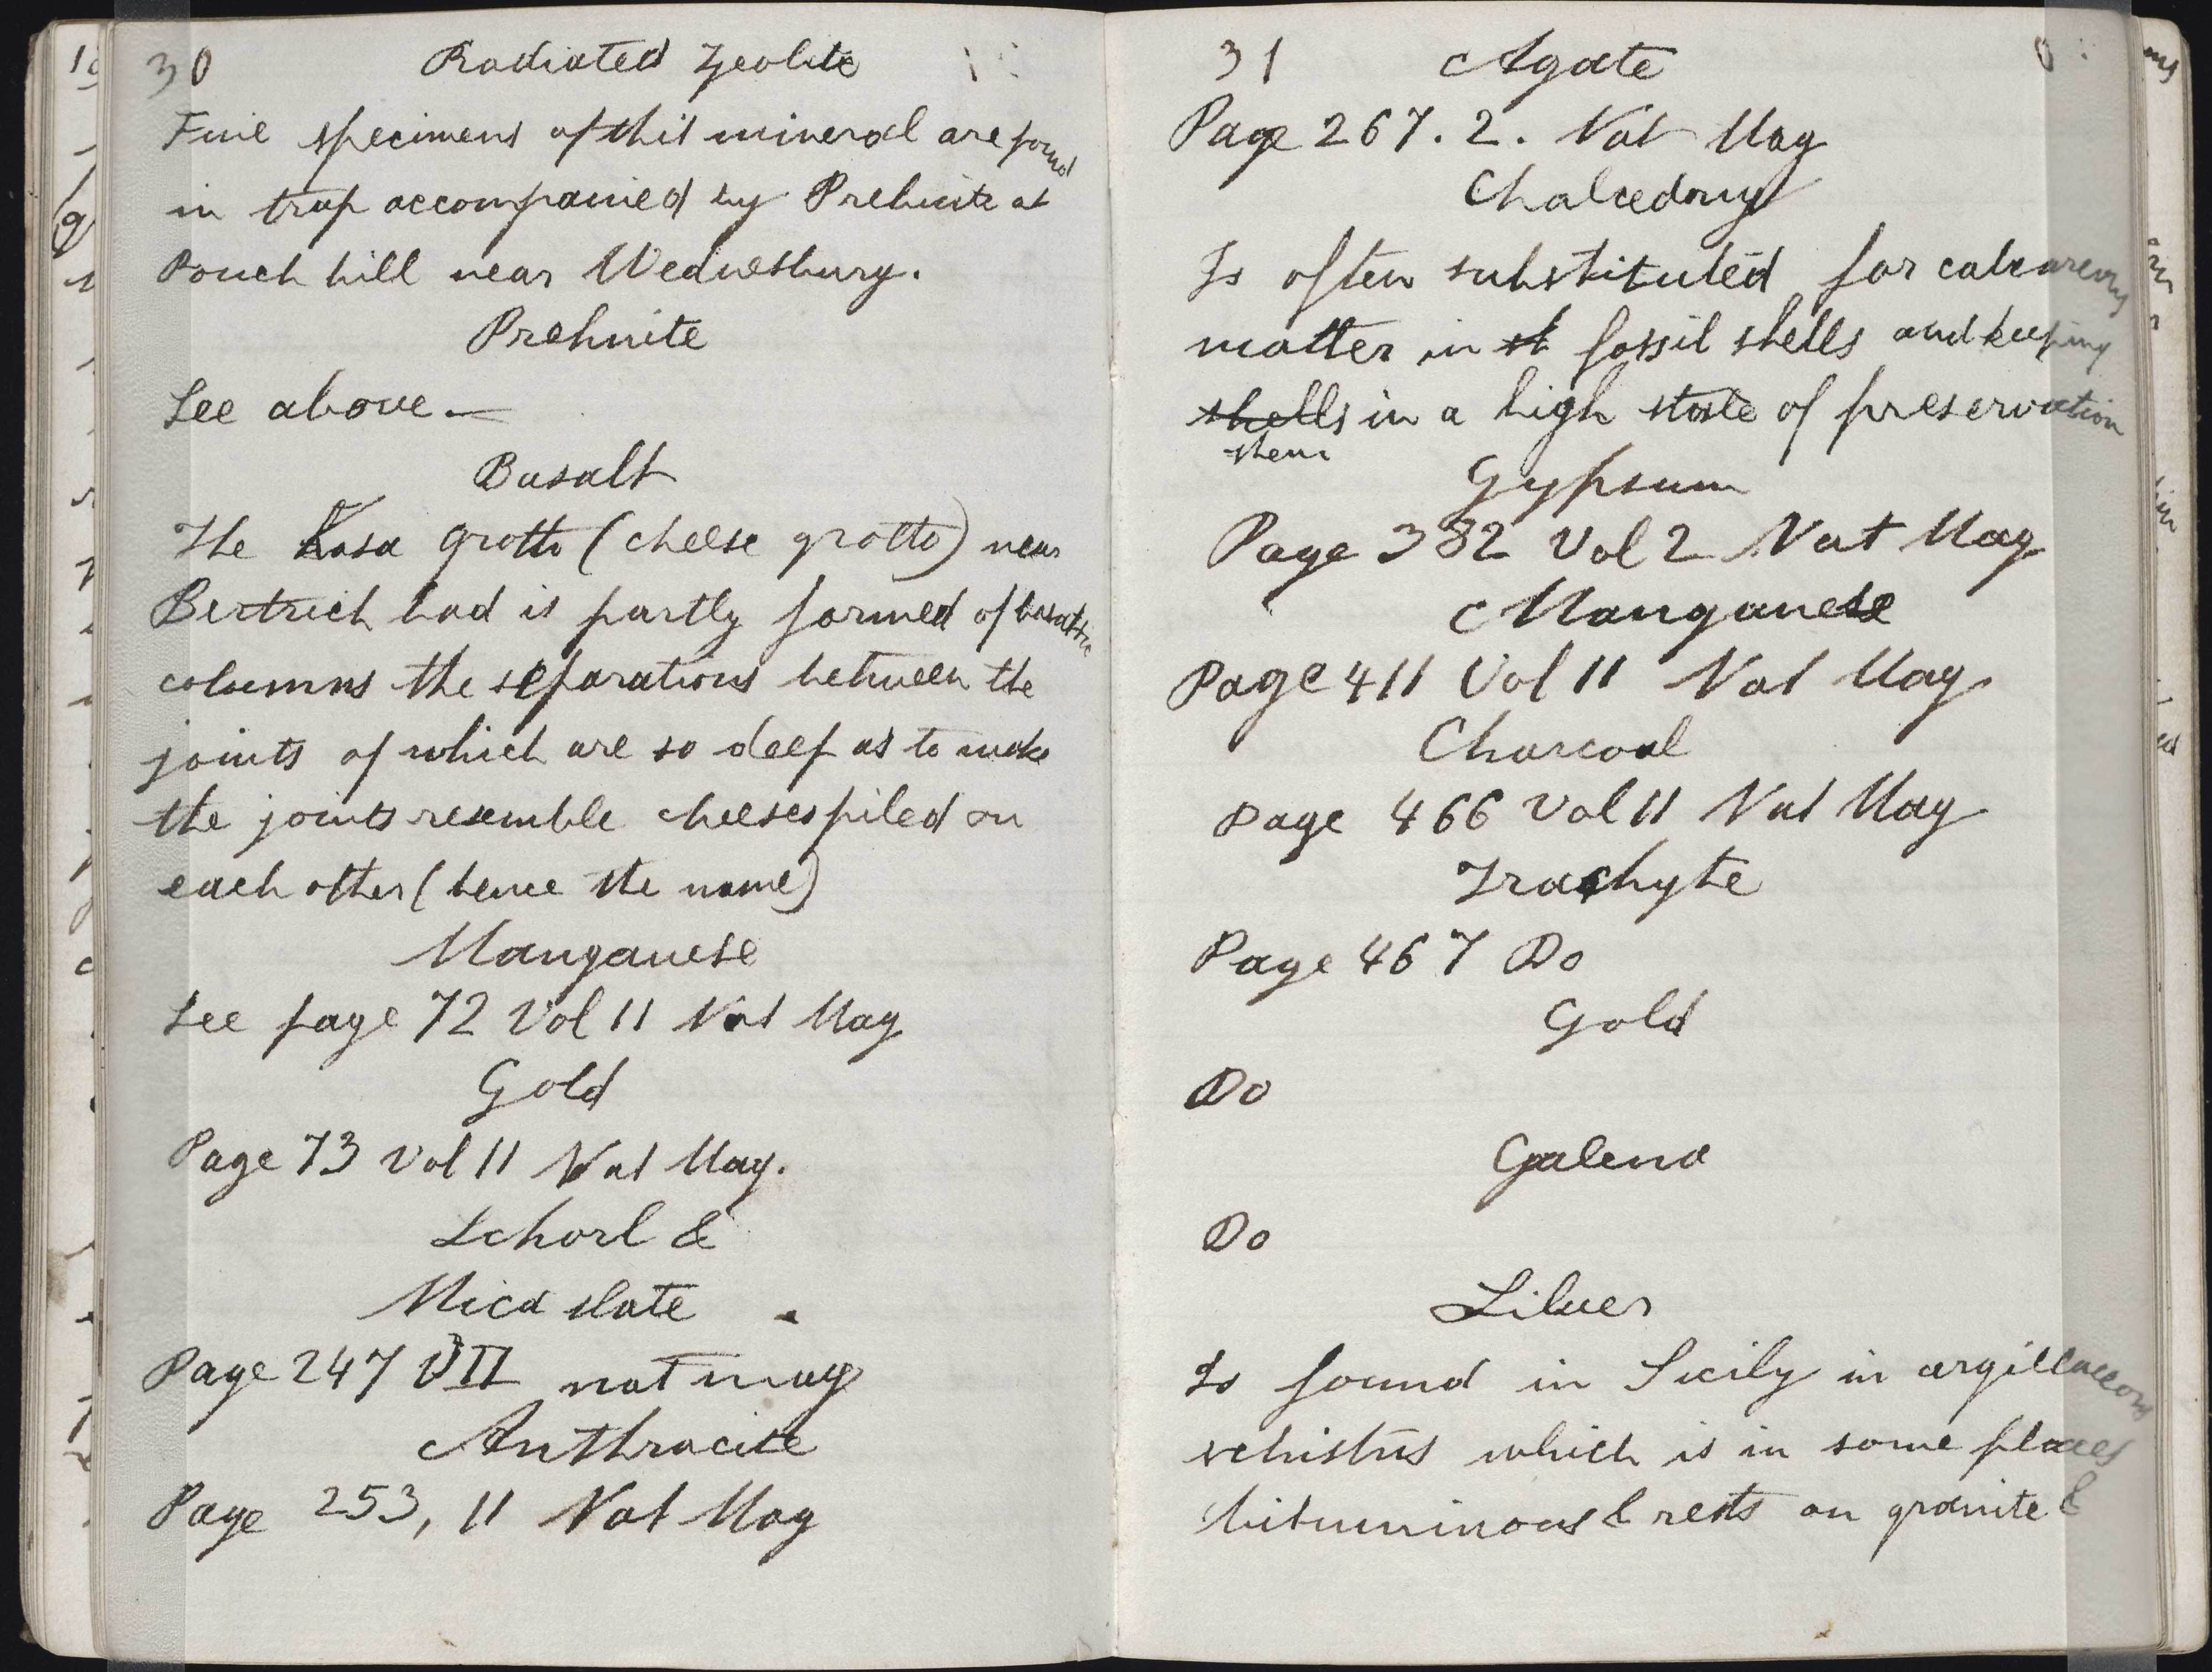 30 Radiated Zeolite
Fine specimens of this mineral are found
in trap accompanied by Prehnite at
Pouch hill near Wednesbury.
Prehnite
See above —
Basalt
The Kasa grotto (cheese grotto) near
Bertrich bad is partly formed of basaltic
columns the separations between the
joints of which are so deep as to make
the joints resemble cheeses piled on
each other (hence the name)
Manganese
See page 72 Vol 11 Nat Mag
Gold
Page 73 Vol 11 Nat Mag.
Schorl &
Mica slate
Page 247 VII nat mag
Anthracite
Page 253, 11 Nat Mag
31 Agate
Page 267. 2. Nat Mag
Chalcedony
Is often substituted for calcareous
matter in st fossil shells and keeping
shells in a high state of preservation
them
Gypsum
Page 382 Vol 2 Nat Mag
Manganese
Page 411 Vol 11 Nat Mag
Charcoal
Page 466 Vol 11 Nat Mag
Trachyte
Page 467 Do
Gold
Do
Galena
Do
Silver
Is found in Sicily in argillaceous
schistus which is in some places
bituminous & rests on granite &